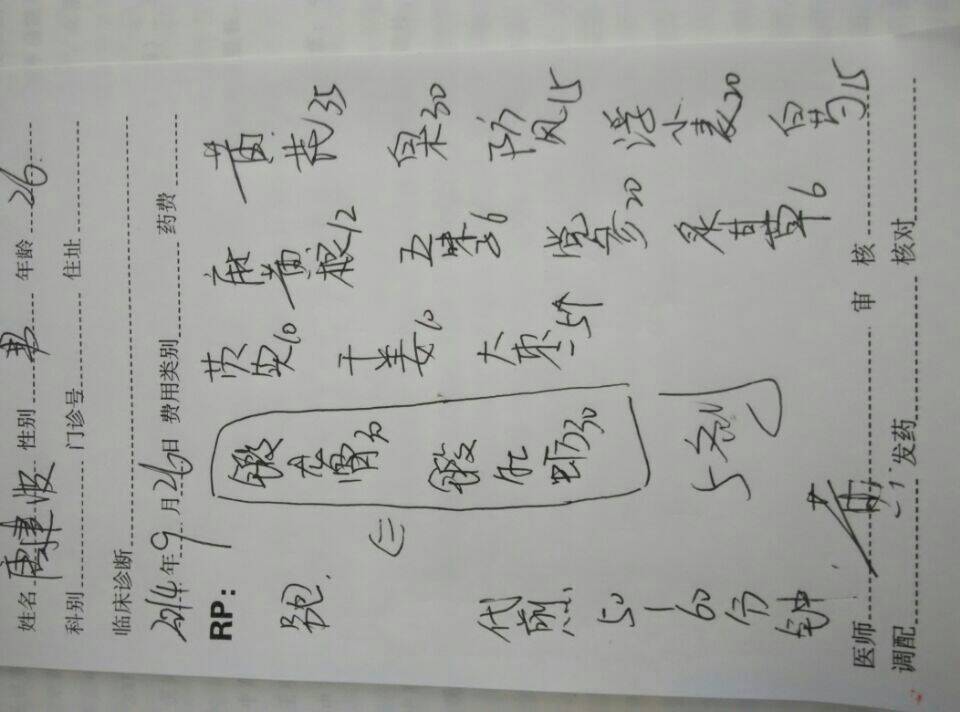 姓名 唐建波 性别 男 年龄 26
科别 门诊号 住址
临床诊断
2014年9月26日 费用类别 药费
RP:
黄芪35
白术30
防风15
浮小麦20
白芍15
麻黄根12
五味子6
党参20
炙甘草6
干姜10
大枣5个
煅龙骨30
煅牡蛎30
5剂
代煎50—60分钟
医师 审核
调配 发药 核对